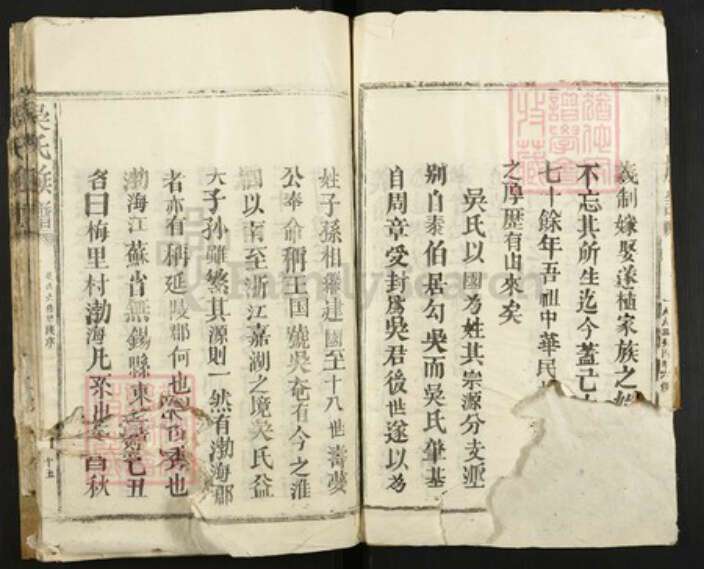 義制嫁娶遂植家族之
不忘其所生迄今蓋已
七十餘年吾祖中華民
之厚歷有由來矣
吳氏以國為姓其宗源分支逕
別自泰伯居勾吳而吳氏肇基
自周章受封為吳君後世遂以為
姓子孫相繼建國至十八世壽夢
公奉命稱王国號吳奄有今之淮
泗以南至浙江嘉湖之境吳氏益
大子孫雖繁其源則一然有渤海郡
者亦有稱延陵郡何也
渤海江蘇省無錫縣東
名曰梅里村渤海凡 也 酉秋
吳氏族譜
十五
FamilySearch